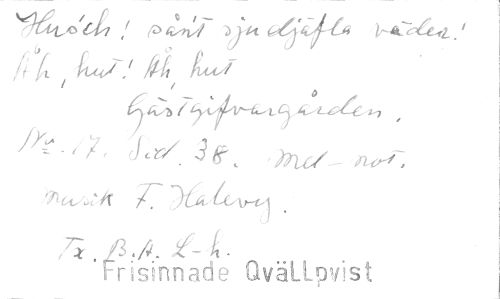 Husch! sånt sjudjäfla väder!
Åh, hut! Åh, hut
Gästgifvargården.
No. 17. Sid. 38. Mel-not.
musik F. Halevy.
Tx. B.A. L-h.
Frisinnade QväLLpvist